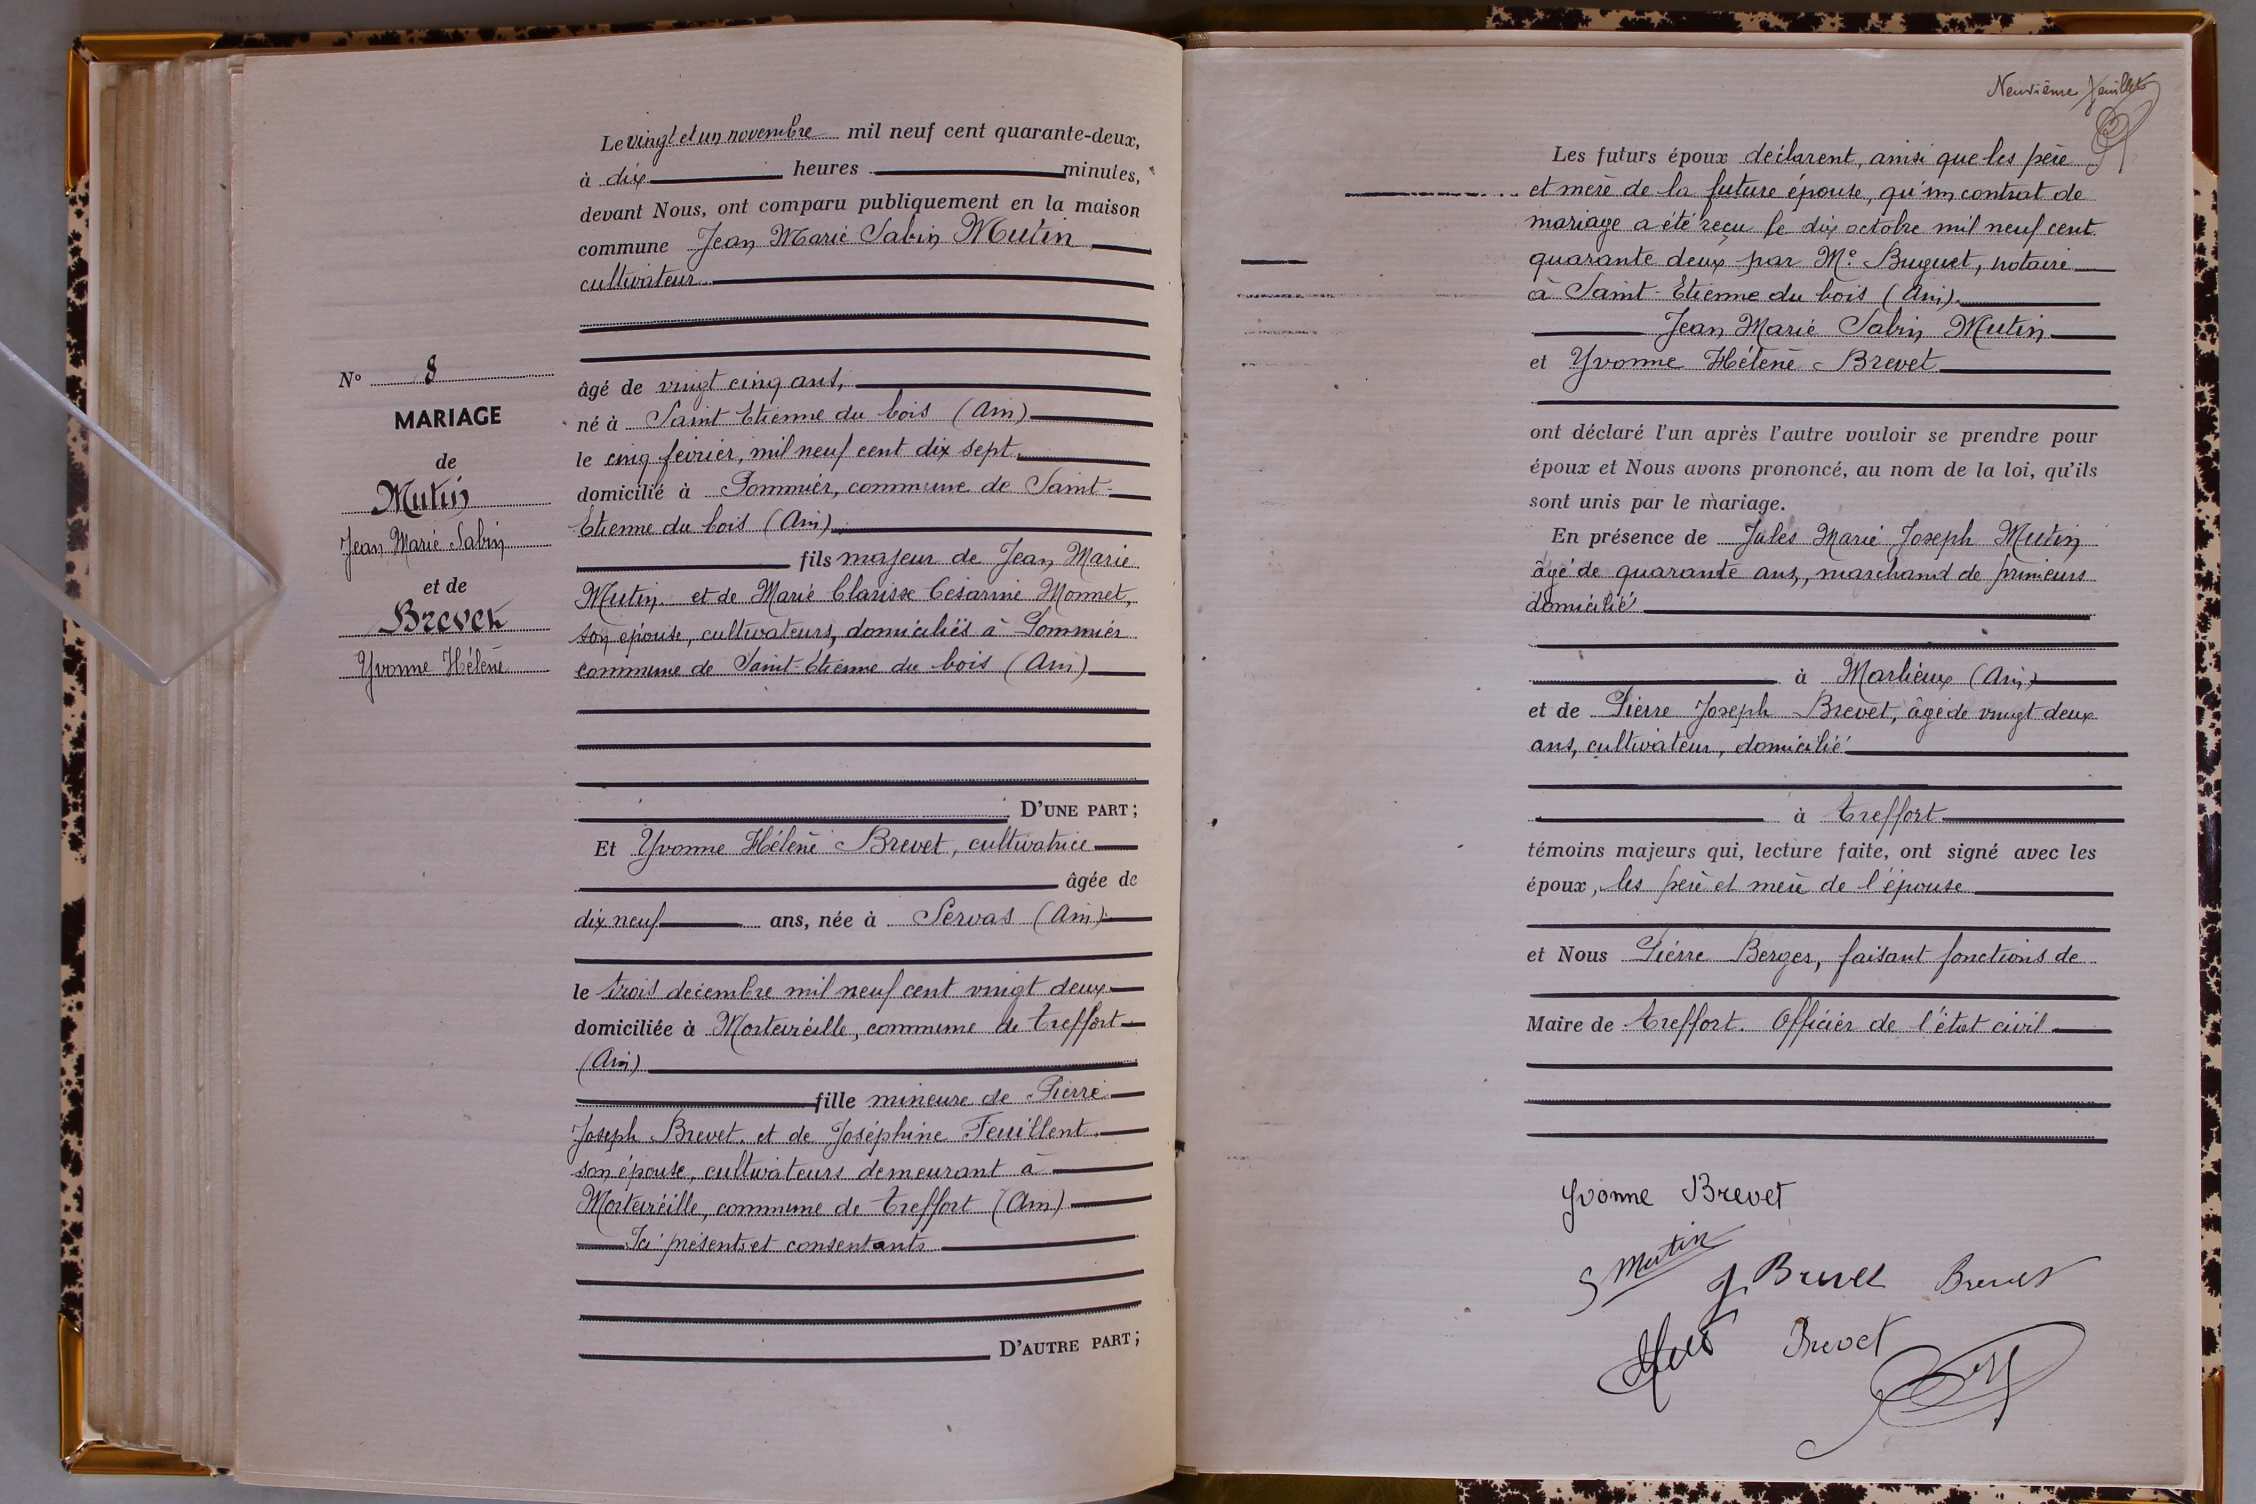 N° 8
MARIAGE
de
Mutin
Jean Marie Sabin
et de
Brevet
Yvonne Hélène
Le vingt et un novembre mil neuf cent quarante-deux,
à dix heures minutes,
devant Nous, ont comparu publiquement en la maison
commune Jean Marie Sabin Mutin
cultivateur
âgé de vingt cinq ans,
né à Saint Etienne du bois (Ain)
le cinq février, mil neuf cent dix sept
domicilié à Pommier, commune de Saint-
Etienne du bois (Ain)
fils majeur de Jean Marie
Mutin et de Marie Clarisse Césarine Monnet,
son épouse, cultivateurs, domiciliés à Pommier
commune de Saint-Etienne du bois (Ain)
D'UNE PART;
Et Yvonne Hélène Brevet, cultivatrice
âgée de
dix neuf ans, née à Servas (Ain)
le trois décembre mil neuf cent vingt deux
domiciliée à Montevéille, commune de Treffort
(Ain)
fille mineure de Pierre
Joseph Brevet et de Joséphine Feuillent
son épouse, cultivateurs demeurant à
Montevéille, commune de Treffort (Ain)
Ici présents et consentants
D'AUTRE PART;
Neuvième feuillet
Les futurs époux déclarent, ainsi que les père
et mère de la future épouse, qu'un contrat de
mariage a été reçu le dix octobre mil neuf cent
quarante deux par Me Buguet, notaire
à Saint-Etienne du bois (Ain)
Jean Marie Sabin Mutin
et Yvonne Hélène Brevet
ont déclaré l'un après l'autre vouloir se prendre pour
époux et Nous avons prononcé, au nom de la loi, qu'ils
sont unis par le mariage.
En présence de Jules Marie Joseph Mutin
âgé de quarante ans, marchand de primeurs
domicilié
à Marlieux (Ain)
et de Pierre Joseph Brevet, âgé de vingt deux
ans, cultivateur, domicilié
à Treffort
témoins majeurs qui, lecture faite, ont signé avec les
époux, les père et mère de l'épouse
et Nous Pierre Berger, faisant fonctions de
Maire de Treffort. Officier de l'état civil
Yvonne Brevet
S Mutin
J. Brevet Brevet
Brevet